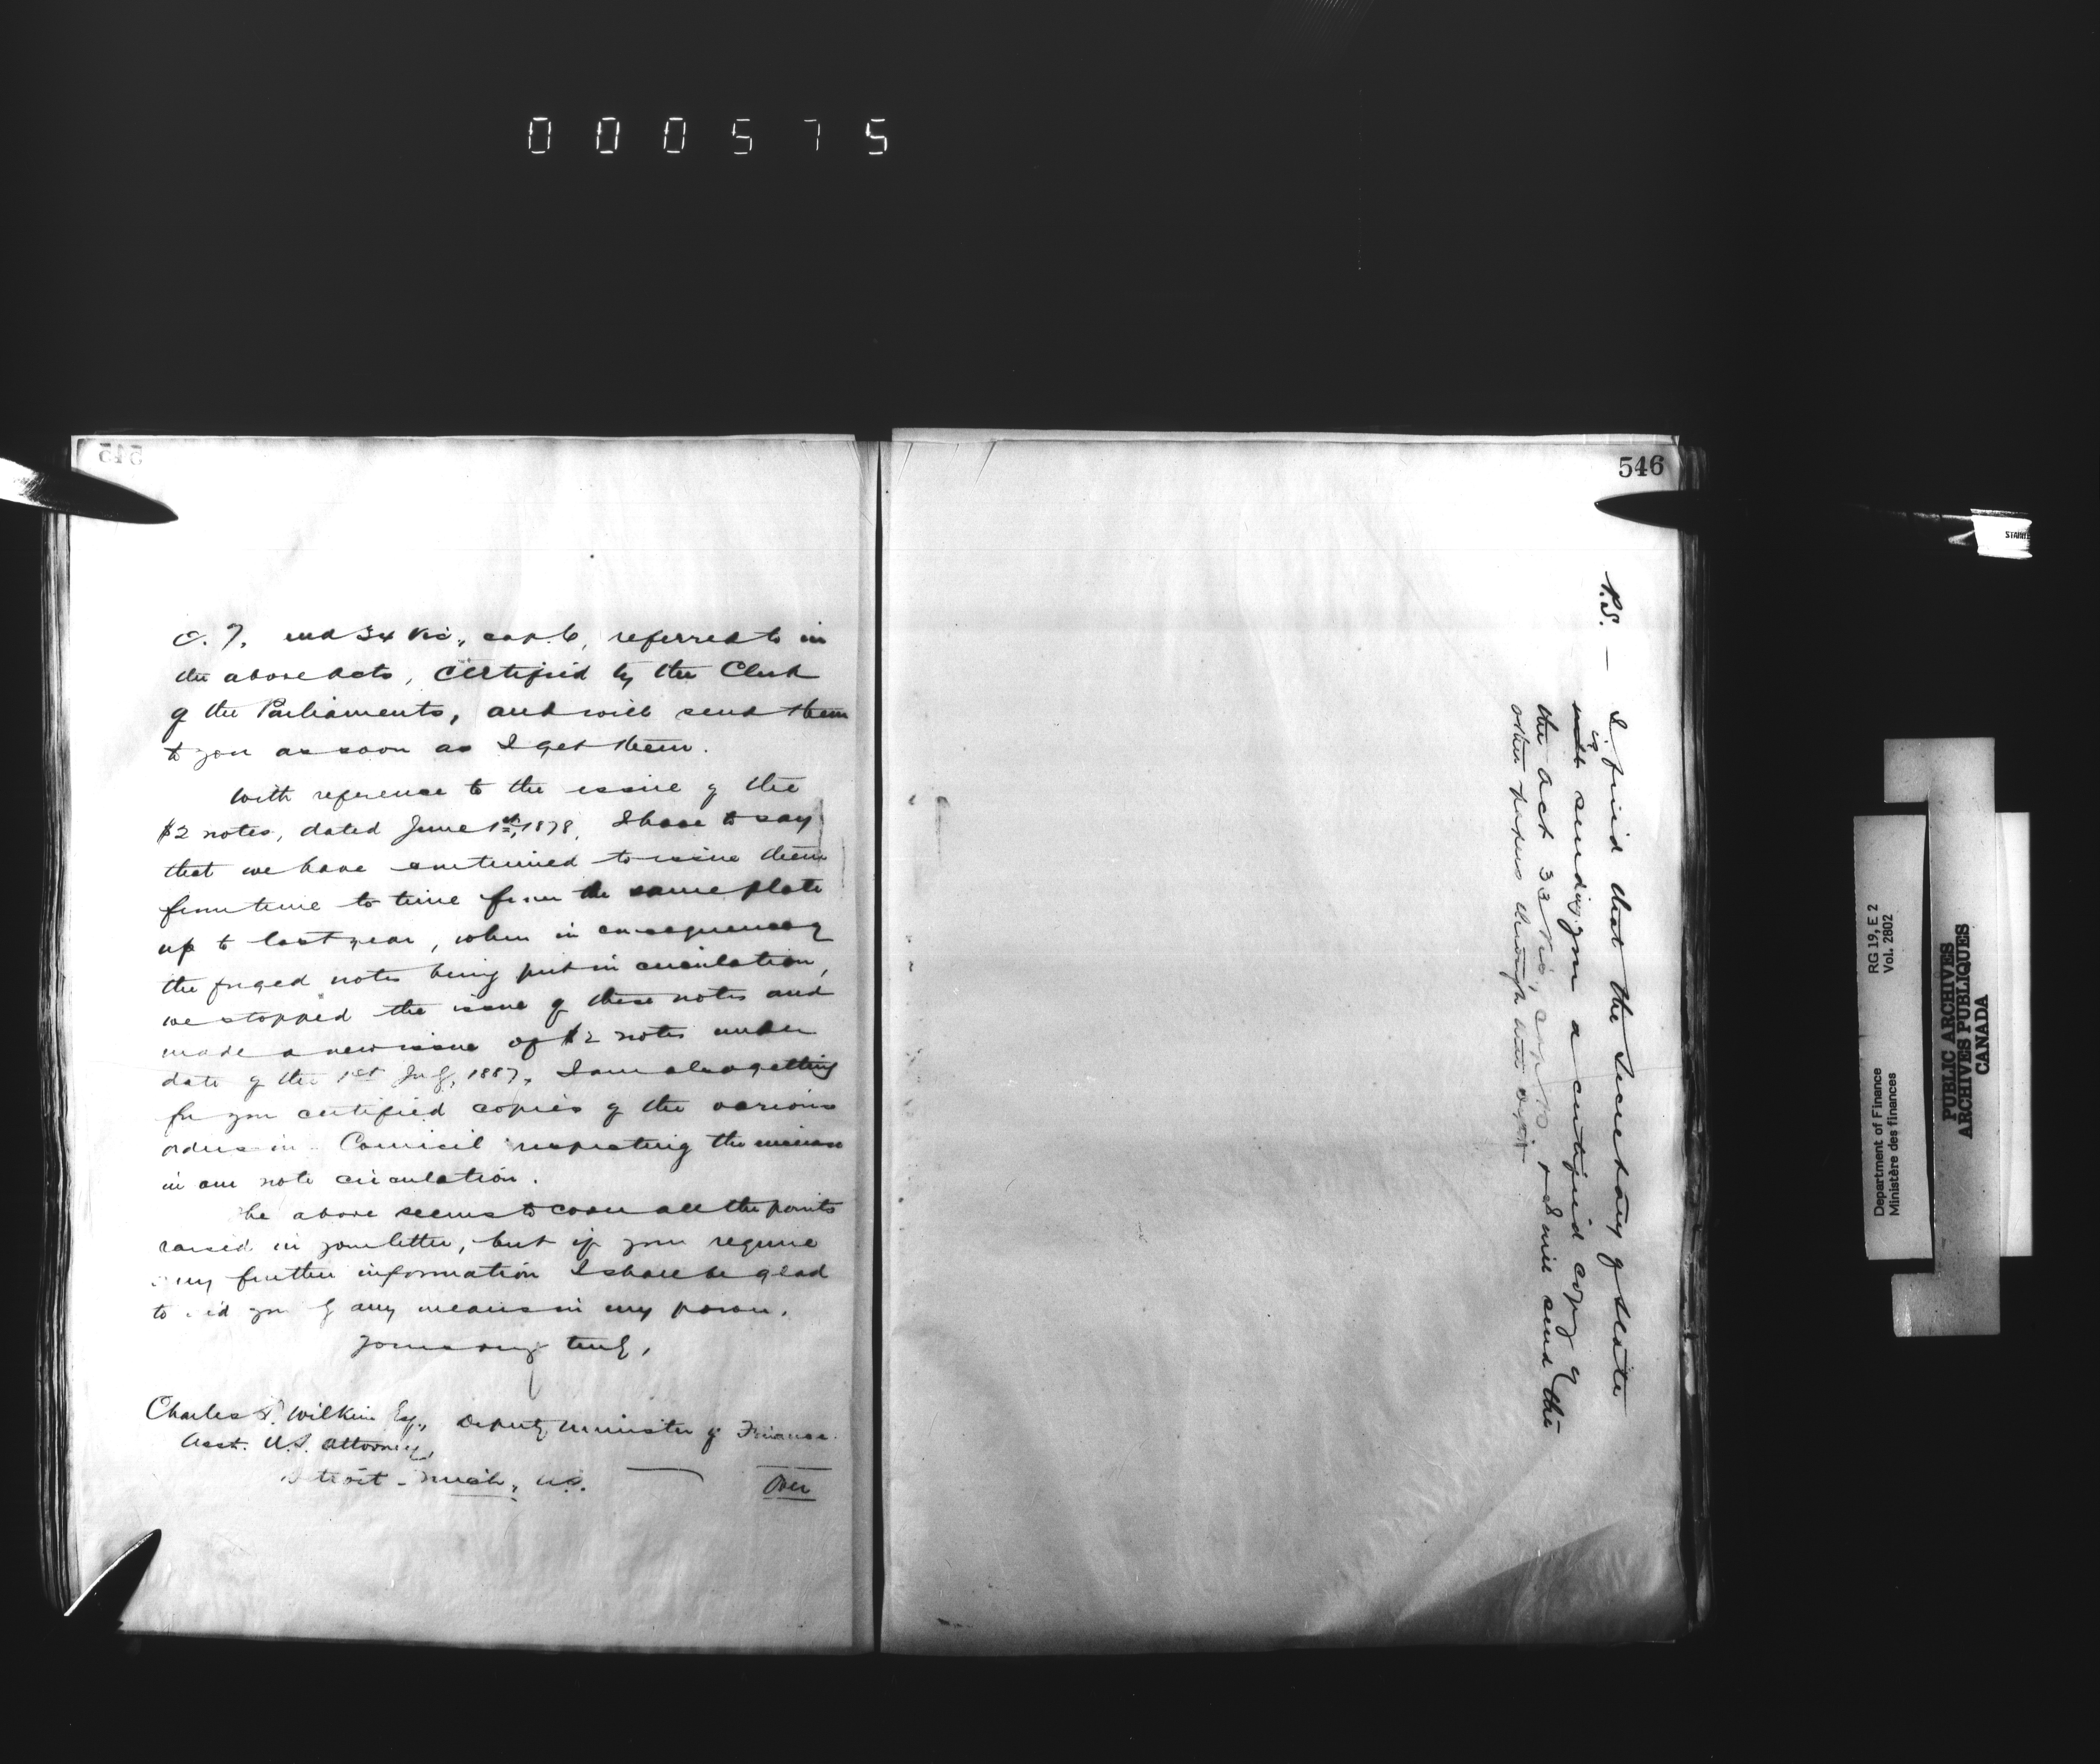 000575
545
C. 7. and 34 Vic., cap. 6, referred to in
the above Acts, certified by the Clerk
of the Parliaments, and will send them
to you as soon as I get them.
With reference to the issue of the
$2 notes, dated June 1st, 1878, I have to say
that we have continued to issue them
from time to time from the same plate
up to last year, when in consequence of
the forged notes being put in circulation,
we stopped the issue of these notes and
made a new issue of $2 notes under
date of the 1st July, 1887. I am also getting
for you certified copies of the various
orders in Council respecting the increase
in our note circulation.
The above seems to cover all the points
raised in your letter, but if you require
any further information I shall be glad
to aid you by any means in my power.
Yours very truly,
Charles T. Wilkins Esq., Deputy Minister of Finance.
Asst. U.S. Attorney,
Detroit - Mich., U.S.
Over
546
P.S. — I find that the Secretary of State
is sending you a certified copy of
the Act 33 Vic, cap 10, & I will send the
other papers through him
STAINLE
RG 19, E 2
Vol. 2802
Department of Finance
Ministère des finances
PUBLIC ARCHIVES
ARCHIVES PUBLIQUES
CANADA